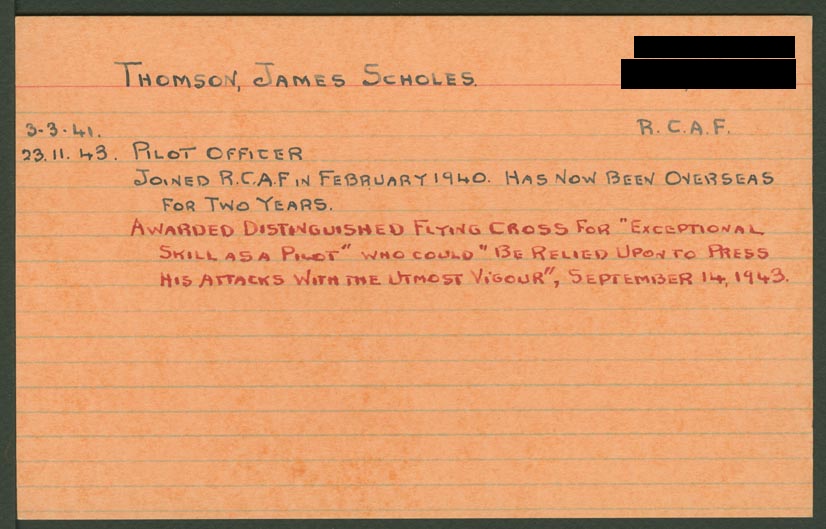 THOMSON, JAMES SCHOLES.
3-3-41. R.C.A.F.
23.11.43. PILOT OFFICER
JOINED R.C.A.F IN FEBRUARY 1940. HAS NOW BEEN OVERSEAS
FOR TWO YEARS.
AWARDED DISTINGUISHED FLYING CROSS FOR "EXCEPTIONAL
SKILL AS A PILOT" WHO COULD "BE RELIED UPON TO PRESS
HIS ATTACKS WITH THE UTMOST VIGOUR", SEPTEMBER 14, 1943.